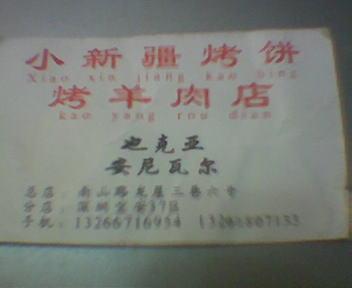 小新疆烤饼
Xiao xin jiang kao bing
烤羊肉店
kao yang rou dian
也克亚
安尼瓦尔
总店：南山路龙屋三巷六号
分店：深圳宝安37区
手机：13266716934